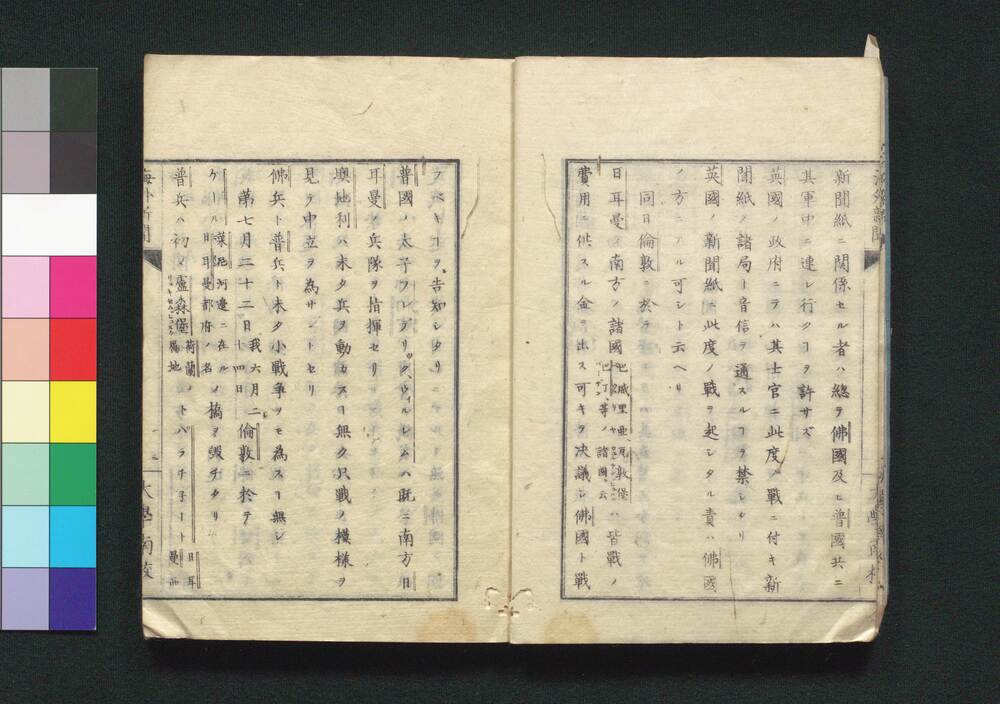 新聞紙ニ関係セル者ハ總テ佛國及ヒ普國共ニ
其軍中ニ連レ行クヿヲ許サズ
英國ノ政府ニテハ其士官ニ此度ノ戰ニ付キ新
聞紙ノ諸局ト音信ヲ通スルヿヲ禁シタリ
英國ノ新聞紙ニ此度ノ戰ヲ起シタル責ハ佛國
ノ方ニアル可シト云ヘリ
同日倫敦ニ於テ
日耳曼ノ南方ノ諸國ハ皆戰ノ
費用ニ供スル金ヲ出ス可キヲ决議シ佛國ト戰
フヘキヿヲ告知シタリ
普國ノ太子フレデリッキウィルレムハ既ニ南方日
耳曼ノ兵隊ヲ指揮セリ
墺地利ハ未タ兵ヲ動カスヿ無ク只戰ノ模様ヲ
見テ中立ヲ為サントセリ
佛兵ト普兵ト未タ小戰争ヲモ為スヿ無シ
第七月二十二日我六月二十四日倫敦ニ於テ
ケール萊尼河邊ニ在ル日耳曼都府ノ名ノ橋ヲ毀チタリ
普兵ハ初メ盧森堡荷蘭ノ属地トパラチ子ート日耳曼西
海外新聞
大學南校